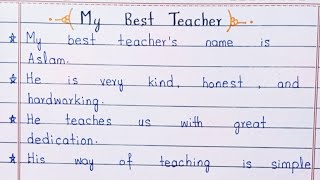 My Best Teacher
My best teacher's name is
Aslam.
He is very kind, honest, and
hardworking.
He teaches us with great
dedication.
His way of teaching is simple